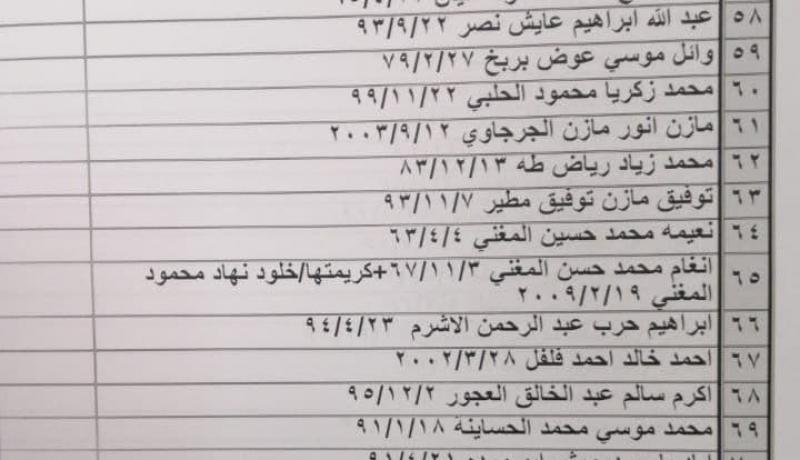 ٥٨ عبد الله ابراهيم عايش نصر ٩٣/٩/٢٢
٥٩ وائل موسي عوض بربخ ٧٩/٢/٢٧
٦٠ محمد زكريا محمود الحلبي ٩٩/١١/٢٢
٦١ مازن انور مازن الجرجاوي ٢٠٠٣/٩/١٢
٦٢ محمد زياد رياض طه ٨٣/١٢/١٣
٦٣ توفيق مازن توفيق مطير ٩٣/١١/٧
٦٤ نعيمه محمد حسين المغني ٦٣/٤/٤
٦٥ انغام محمد حسن المغني ٦٧/١١/٣+كريمتها/خلود نهاد محمود
المغني ٢٠٠٩/٢/١٩
٦٦ ابراهيم حرب عبد الرحمن الاشرم ٩٤/٤/٢٣
٦٧ احمد خالد احمد فلفل ٢٠٠٢/٣/٢٨
٦٨ اكرم سالم عبد الخالق العجور ٩٥/١٢/٢
٦٩ محمد موسي محمد الحساينة ٩١/١/١٨